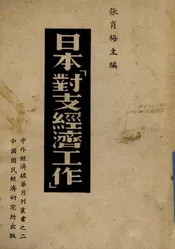 張肖梅主編
日本「對支經濟工作」
中外經濟拔萃月刊叢書之二
中國國民經濟研究所出版